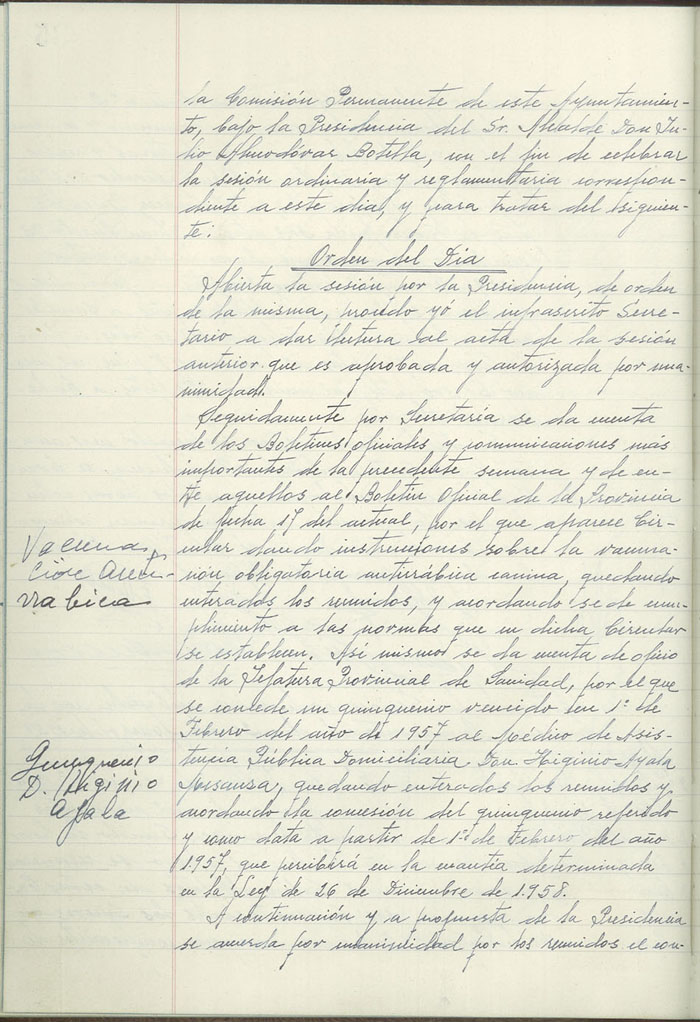 la Comisión Permanente de este Ayuntamien-
to, bajo la Presidencia del Sr. Alcalde Don Ju-
lio Almodóvar Botella, con el fin de celebrar
la sesión ordinaria y reglamentaria correspon-
diente a este dia, y para tratar del siguien-
te:
Orden del Dia
Abierta la sesión por la Presidencia, de orden
de la misma, procedo yó el infrascrito Secre-
tario a dar lectura al acta de la sesión
anterior que es aprobada y autorizada por una-
nimidad.
Seguidamente por Secretaría se da cuenta
de los Boletines oficiales y comunicaciones más
importantes de la precedente semana y de en-
tre aquellos al Boletin Oficial de la Provincia
de fecha 17 del actual, por el que aparece Cir-
cular dando instrucciones sobre la vacuna-
ción obligatoria antirrábica canina, quedando
enterados los reunidos, y acordando se de cum-
plimiento a las normas que en dicha Circular
se establecen. Asi mismo se da cuenta de oficio
de la Jefatura Provincial de Sanidad, por el que
se concede un quinquenio vencido en 1º de
Febrero del año de 1957 al Médico de Asis-
tencia Pública Domiciliaria Don Higinio Ayala
quedando enterados los reunidos y
acordando la concesión del quinquenio referido
y como data a partir de 1º de Febrero del año
1957, que percibirá en la cuantía determinada
en la Ley de 26 de Diciembre de 1958.
A continuación y a propuesta de la Presidencia
se acuerda por unanimidad por los reunidos el con-
Vacuna
ción anti-
rrabica
Quinquenio
D. Higinio
Ayala